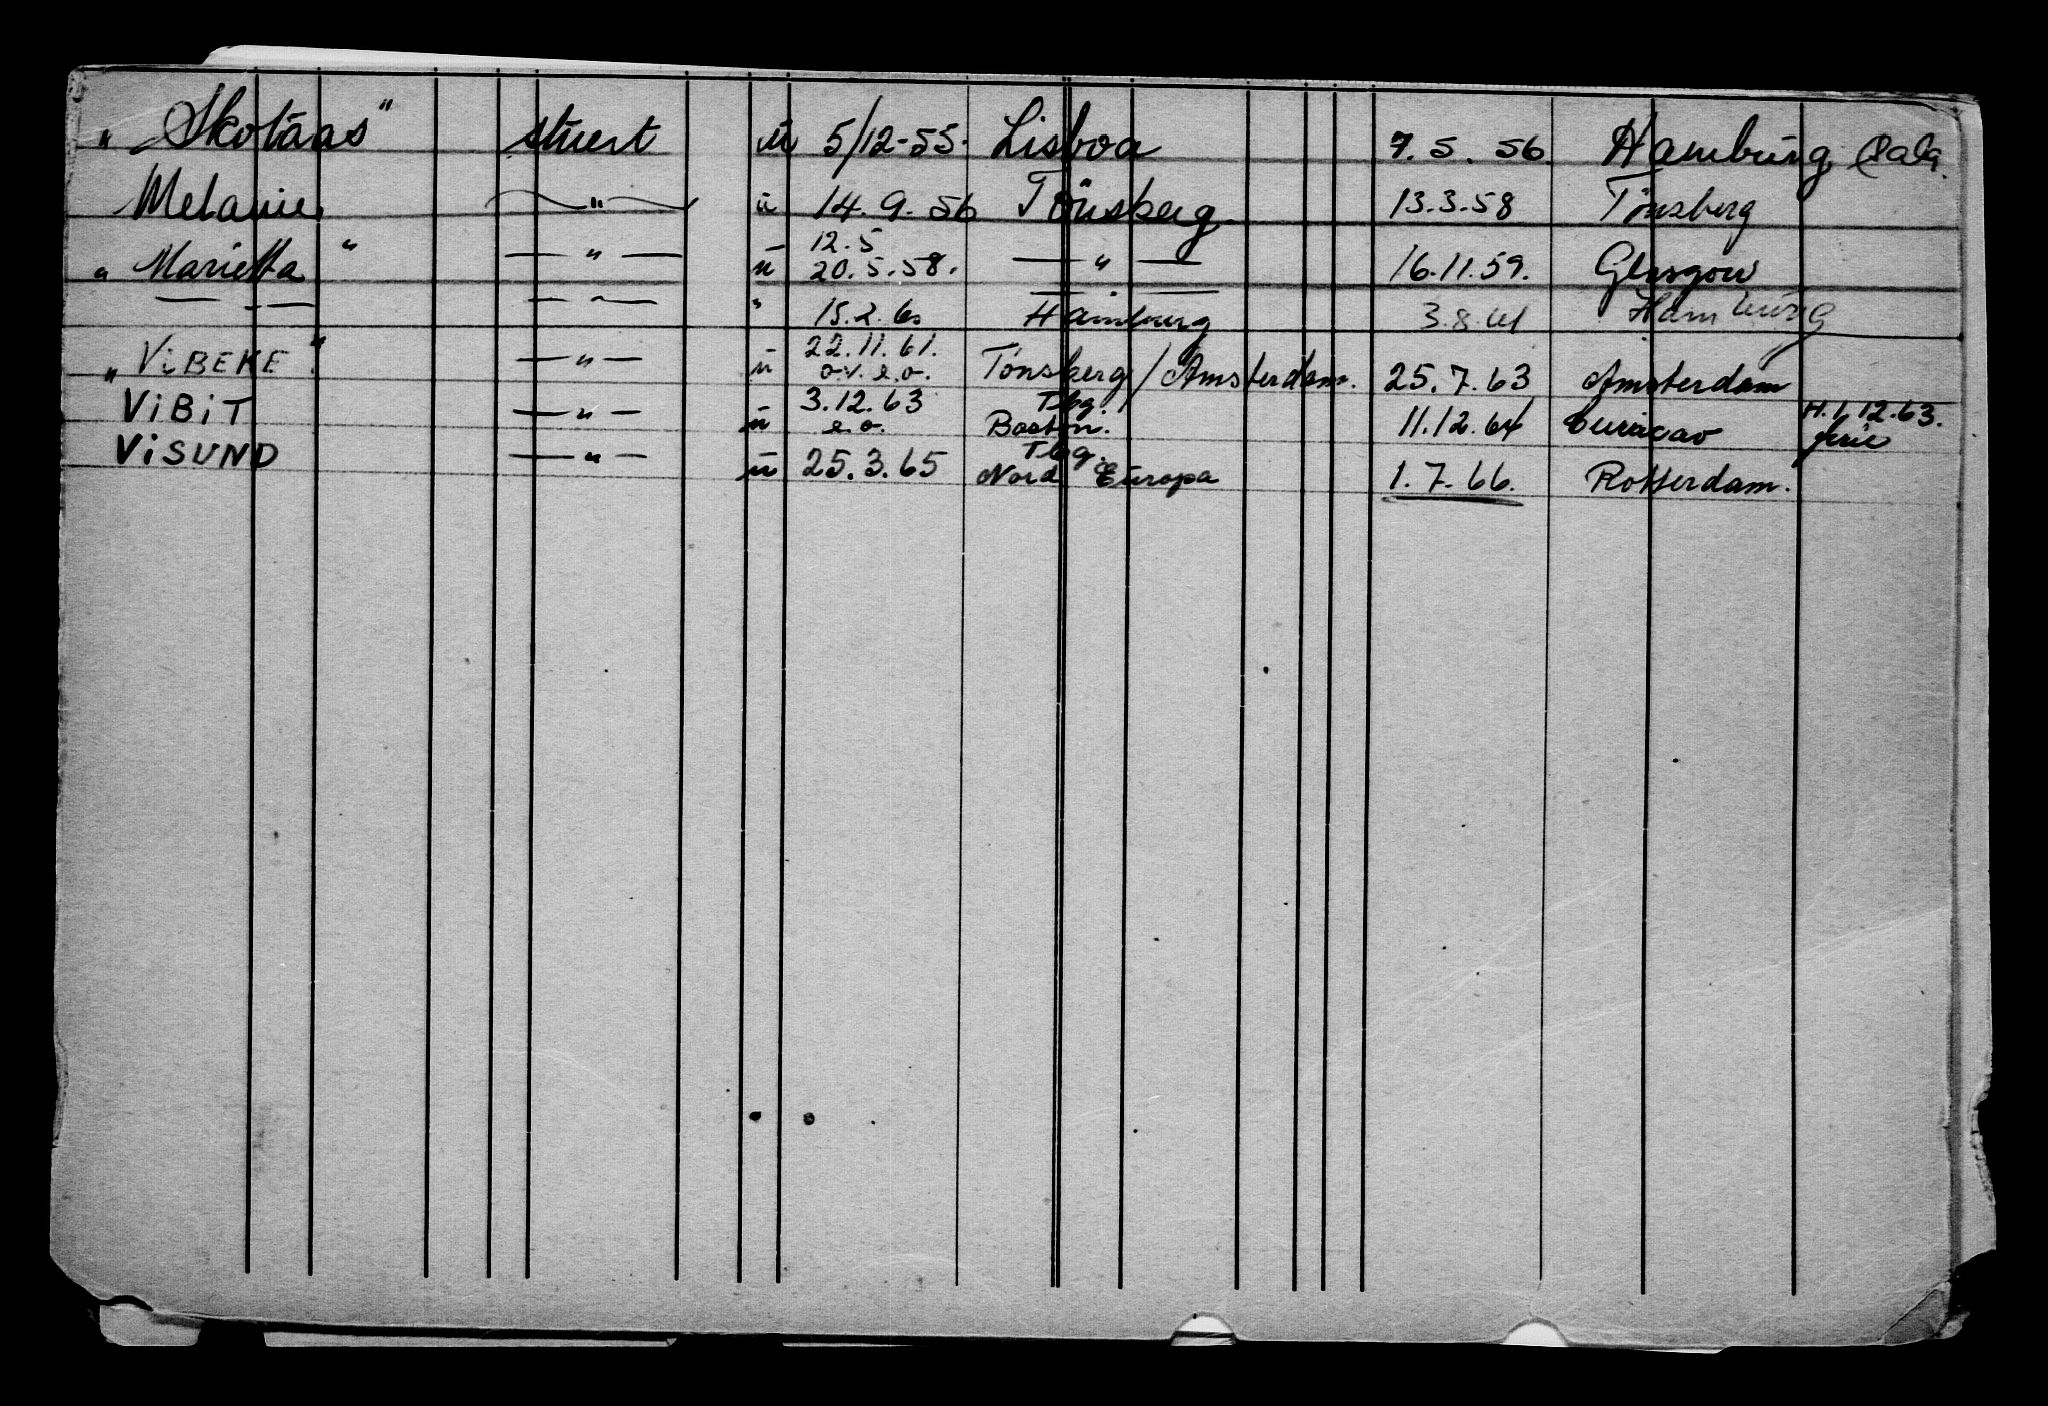 „ Skotaas " stuert ü 5/12-55. Lisboa 7.5.56 Hamburg
Melanie — " — ü 14.9.56 Tönsberg. 13.3.58 Tönsberg
„ Marietta " — " — ü 12.5 20.5.58. — " — 16.11.59. Glasgow
— — — " — " 15.2.60 Hamburg 3.8.61 Hamburg
„ ViBEKE " — " — ü 22.11.61. o.v.e.o. Tönsberg / Amsterdam. 25.7.63 Amsterdam
ViBiT — " — ü 3.12.63 e.o. Tbg. Boston. 11.12.64 Curacao H. 1.12.63. ferie
ViSUND — " — ü 25.3.65 Tbg. Nord Europa 1.7.66. Rotterdam.